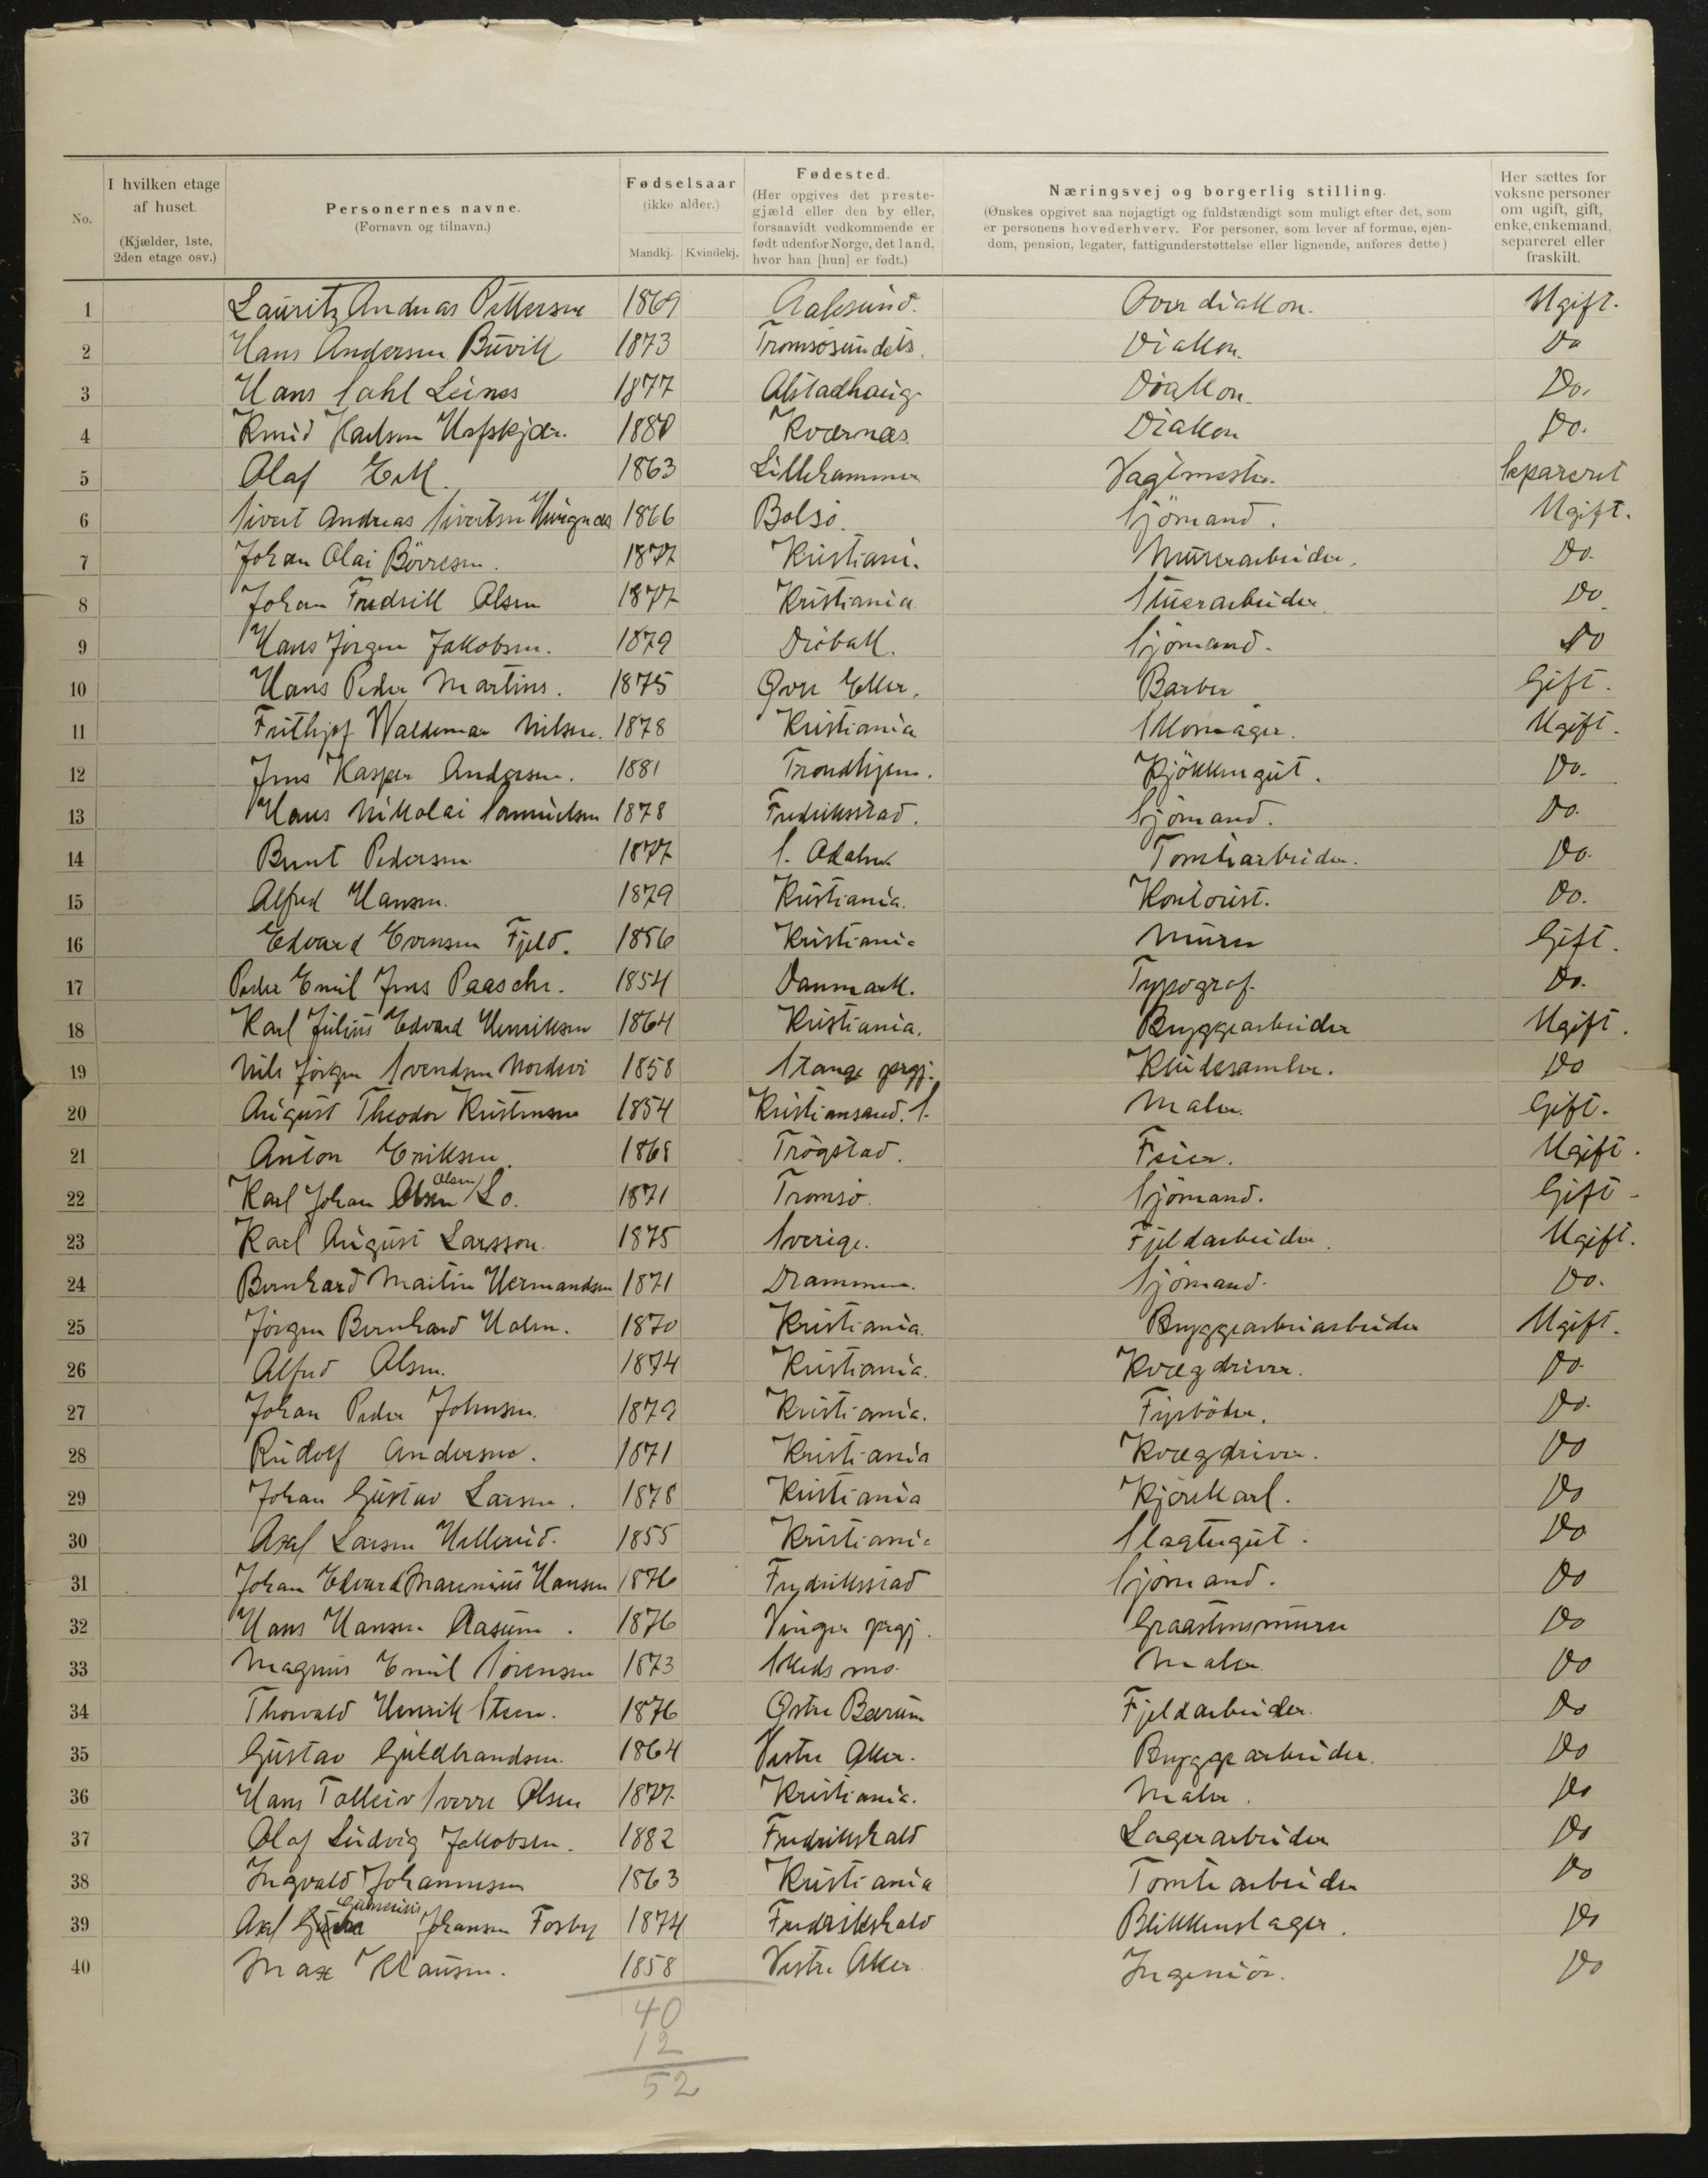 No.
I hvilken etage af huset. (Kjælder, 1ste, 2den etage osv.)
Personernes navne. (Fornavn og tilnavn.)
Fødselsaar (ikke alder.)
Mandkj. Kvindekj.
Fødested. (Her opgives det prestegjæld eller den by eller, forsaavidt vedkommende er født udenfor Norge, det land, hvor han [hun] er født.)
Næringsvej og borgerlig stilling. (Ønskes opgivet saa nøjagtigt og fuldstændigt som muligt efter det, som er personens hovederhverv. For personer, som lever af formue, ejendom, pension, legater, fattigunderstøttelse eller lignende, anføres dette)
Her sættes for voksne personer om ugift, gift, enke, enkemand, separeret eller fraskilt.
1 Lauritz Andreas Pettersen 1869 Aalesund. Overdiakon. Ugift.
2 Hans Andersen Buvik 1873 Tromsøsundets. Diakon. Do
3 Hans Dahl Leines 1877 Alstadhaug Diakon. Do.
4 Knud Karlsen Hafskjær. 1880 Kværnæs Diakon Do.
5 Olaf Eck. 1863 Lillehammer Vagtmester. Separeret
6 Sivert Andreas Sivertsen 1866 Bolsø. Sjömand. Ugift.
7 Johan Olai Börresen. 1877 Kristiani. Murerarbeider. Do.
8 Johan Fredrik Olsen 1877 Kristiania Stuerarbeider Do
9 Hans Jørgen Jakobsen. 1879 Drøbak. Sjömand. Do
10 Hans Peder Martins. 1875 Øvre Eker. Barber Gift.
11 Frithjof Waldemar Nilsen. 1878 Kristiania Skomager. Ugift.
12 Jens Kasper Andersen. 1881 Trondhjem. Kjökkengut. Do.
13 Hans Nikolai Samuelsen 1878 Fredriksstad. Sjömand. Do.
14 Bernt Pedersen 1877 S. Adalen Tomtearbeider. Do.
15 Alfred Hansen. 1879 Kristiania. Kontorist. Do.
16 Edvard Evensen Fjeld. 1856 Kristiania Murer Gift.
17 Peder Emil Jens Paasche. 1854 Danmark. Typograf. Do.
18 Karl Julius Edvard Henriksen 1864 Kristiania. Bryggearbeider Ugift.
19 Nils Jörgen Svendsen Nordsvi 1858 Stange prgj. Kludesamler. Do
20 August Theodor Kristensen 1854 Kristiansand. S. Maler. Gift.
21 Anton Eriksen. 1868 Trögstad. Feier. Ugift.
22 Karl Johan Olsen Lo. 1871 Tromsø. Sjömand. Gift
23 Karl August Larsson. 1875 Sverige. Fjeldarbeider. Ugift.
24 Bernhard Martin Hermandsen 1871 Drammen. Sjömand. Do.
25 Jörgen Bernhard Holm. 1870 Kristiania. Bryggearbeiarbeider Ugift.
26 Alfred Olsen. 1874 Kristiania. Kvægdriver. Do.
27 Johan Peder Johnsen. 1879 Kristiania. Fyrböder. Do.
28 Rudolf Andersen. 1871 Kristiania Kvægdriver. Do
29 Johan Gustav Larsen. 1878 Kristiania Kjörekarl. Do
30 Axel Larsen Hellerud. 1855 Kristiania Slagtergut. Do
31 Johan Edvard Marenius Hansen 1876 Fredriksstad Sjömand. Do
32 Hans Hansen Aasum. 1876 Vinger prgj. Graastensmurer Do
33 Magnus Emil Sörensen 1873 Skedsmo. Maler Do
34 Thorvald Henrik Steen. 1876 Østre Bærum Fjeldarbeider. Do
35 Gustav Guldbrandsen. 1864 Vestre Aker. Bryggearbeider. Do
36 Hans Tolleiv Sverre Olsen 1877. Kristiania. Maler. Do
37 Olaf Ludvig Jakobsen. 1882 Fredrikshald Lagerarbeider Do
38 Ingvald Johannesen 1863 Kristiania Tomtearbeider Do
39 Axel Johansen Fosby 1874 Fredrikshald Blikkenslager. Do
40 Max Klausen. 1858 Vestre Aker Ingeniör. Do
40
12
52